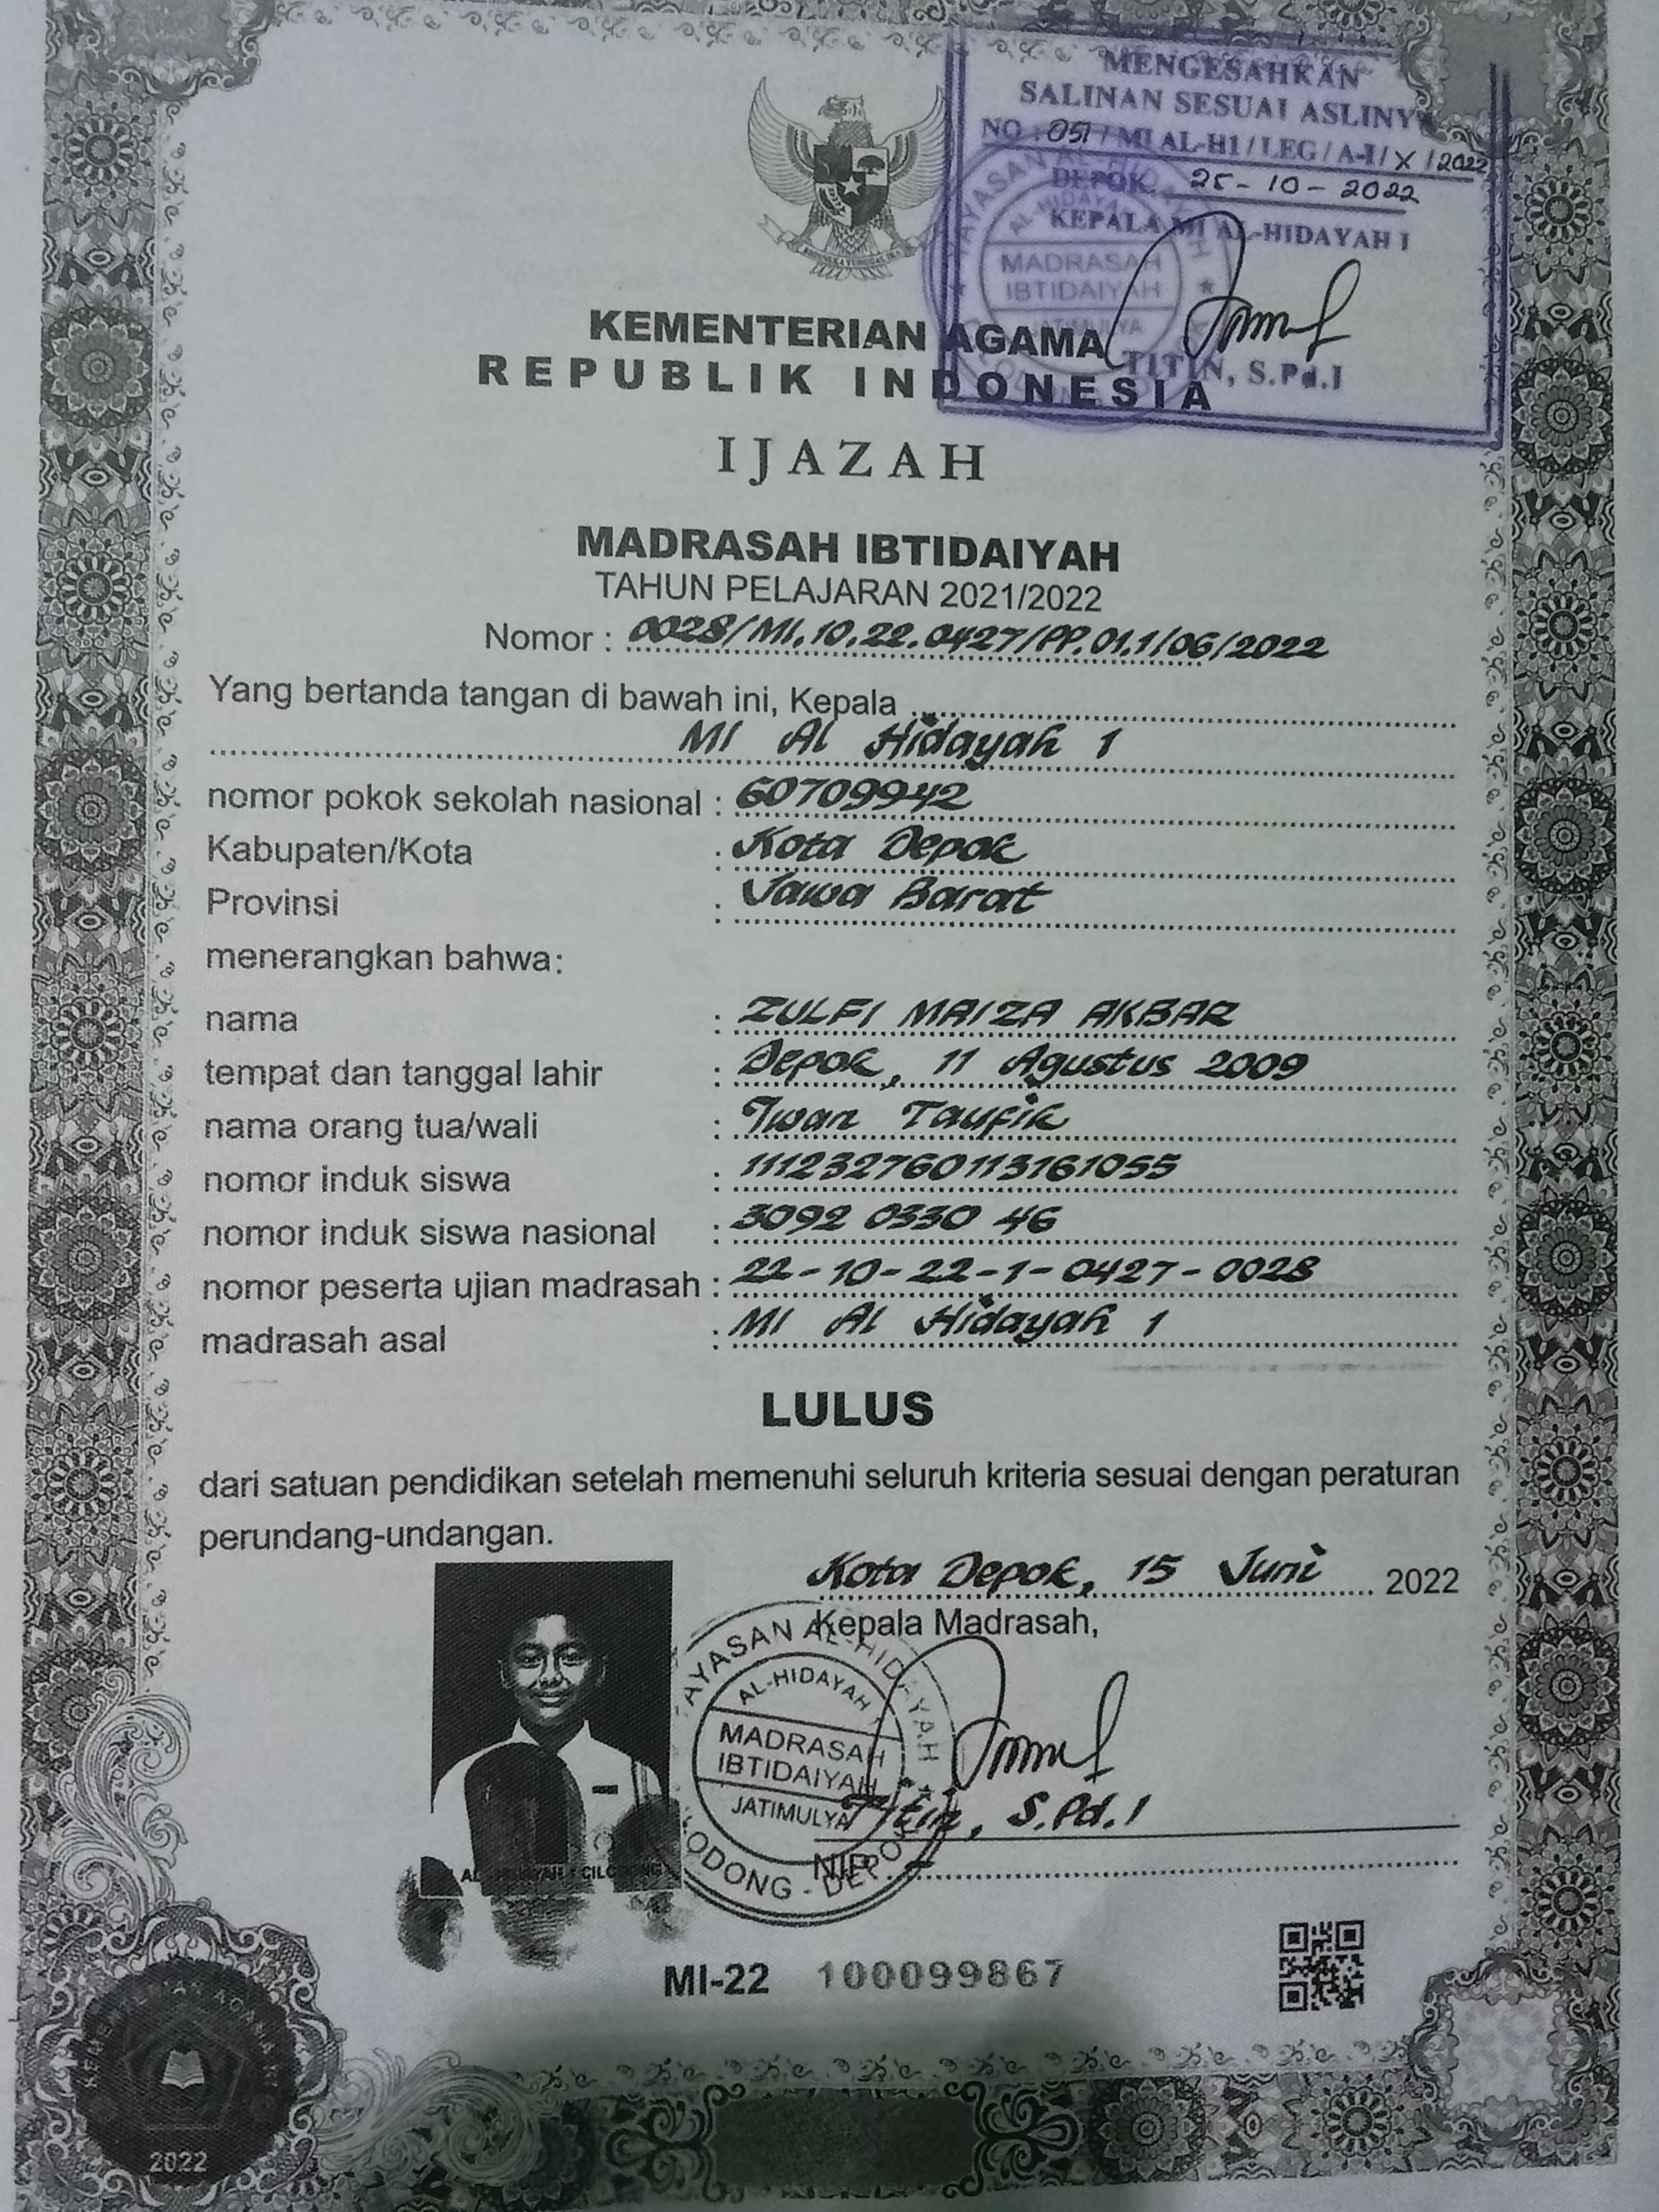 MENGESAHKAN
SALINAN SESUAI ASLINY
NO : 051 / MI AL-H1 / LEG / A-I / X / 2022
DEPOK, 25 - 10 - 2022
KEPALA MI AL-HIDAYAH I
YAYASAN AL-HIDAYAH
AL-HIDAYAH
MADRASAH
IBTIDAIYAH
JATIMULYA
TITIN, S.Pd.I
KEMENTERIAN AGAMA
REPUBLIK INDONESIA
IJAZAH
MADRASAH IBTIDAIYAH
TAHUN PELAJARAN 2021/2022
Nomor : 0028/MI.10.22.0427/PP.01.1/06/2022
Yang bertanda tangan di bawah ini, Kepala
MI Al Hidayah 1
nomor pokok sekolah nasional : 60709942
Kabupaten/Kota : Kota Depok
Provinsi : Jawa Barat
menerangkan bahwa:
nama : ZULFI MAIZA AKBAR
tempat dan tanggal lahir : Depok, 11 Agustus 2009
nama orang tua/wali : Iwan Taufik
nomor induk siswa : 111232760113161055
nomor induk siswa nasional : 3092 0330 46
nomor peserta ujian madrasah : 22-10-22-1-0427-0028
madrasah asal : MI Al Hidayah 1
LULUS
dari satuan pendidikan setelah memenuhi seluruh kriteria sesuai dengan peraturan
perundang-undangan.
Kota Depok, 15 Juni 2022
Kepala Madrasah,
YAYASAN AL-HIDAYAH
AL-HIDAYAH
MADRASAH
IBTIDAIYAH
JATIMULYA
ODONG - DEPOK
Titin, S.Pd.I
NIP. -
MI-22 100099867
2022